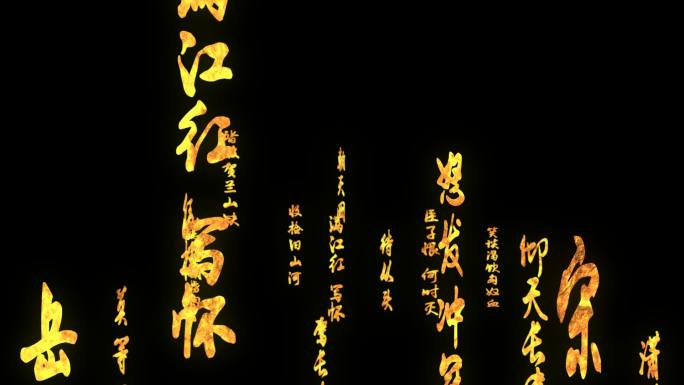 潇
宋
仰天长
笑谈渴饮匈奴血
怒发冲
臣子恨 何时灭
待从头
驾长
满江红 写怀
朝天阙
收拾旧山河
踏破贺兰山缺
满江红 写怀
莫等
岳